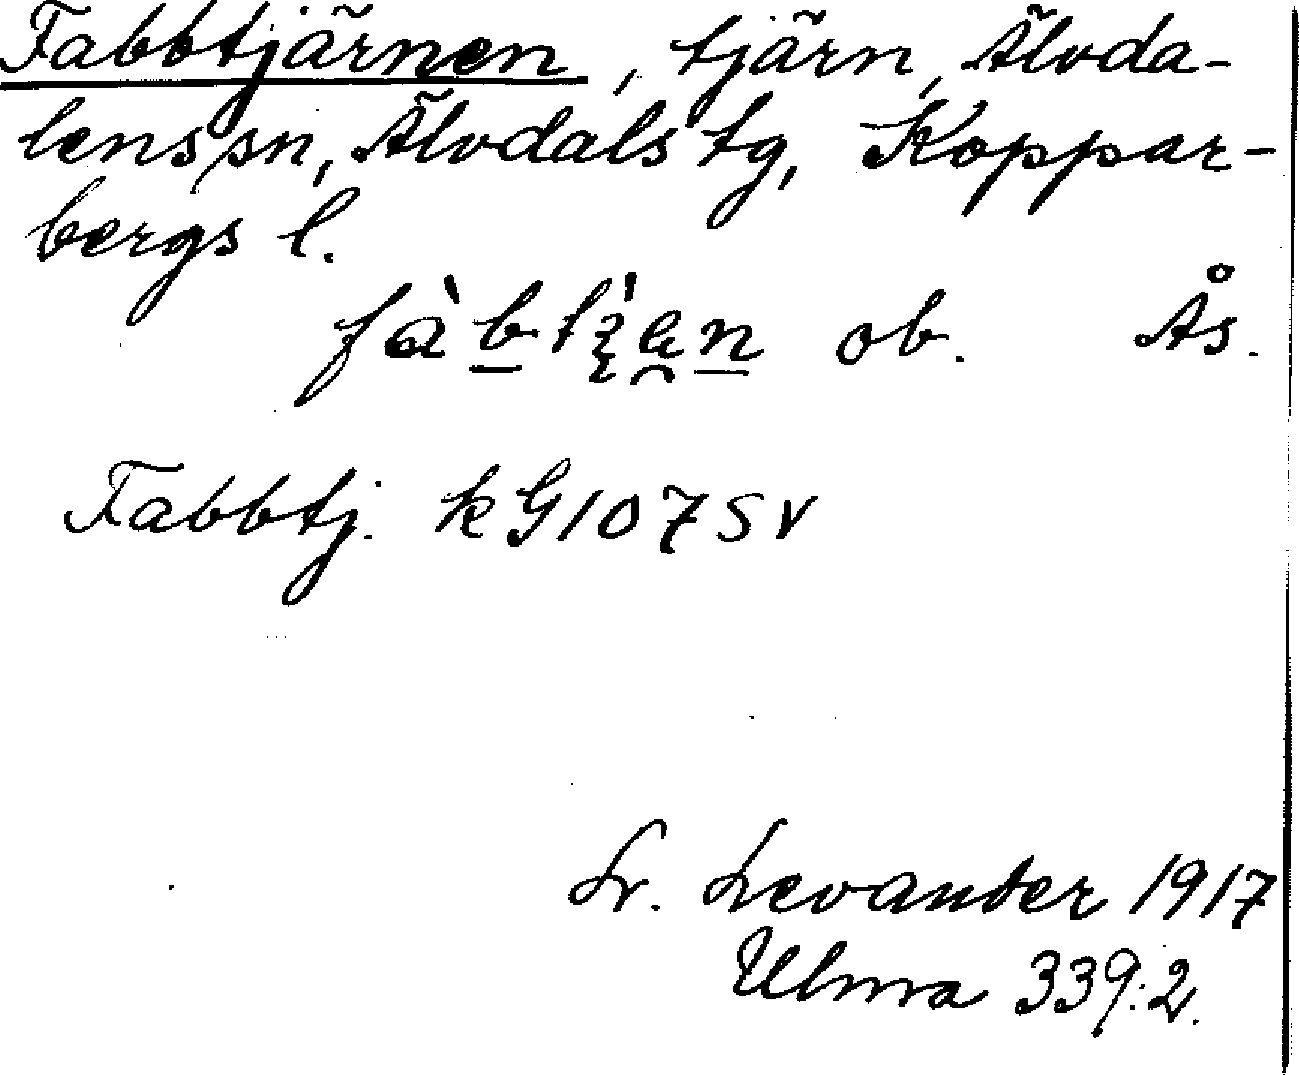 Fabbtjärnen, tjärn, Älvda-
lens sn, Älvdals tg, Koppar-
bergs l.
ob. Ås.
Fabbtj. kG107SV
Lr. Levander 1917
Ulma 339:2.